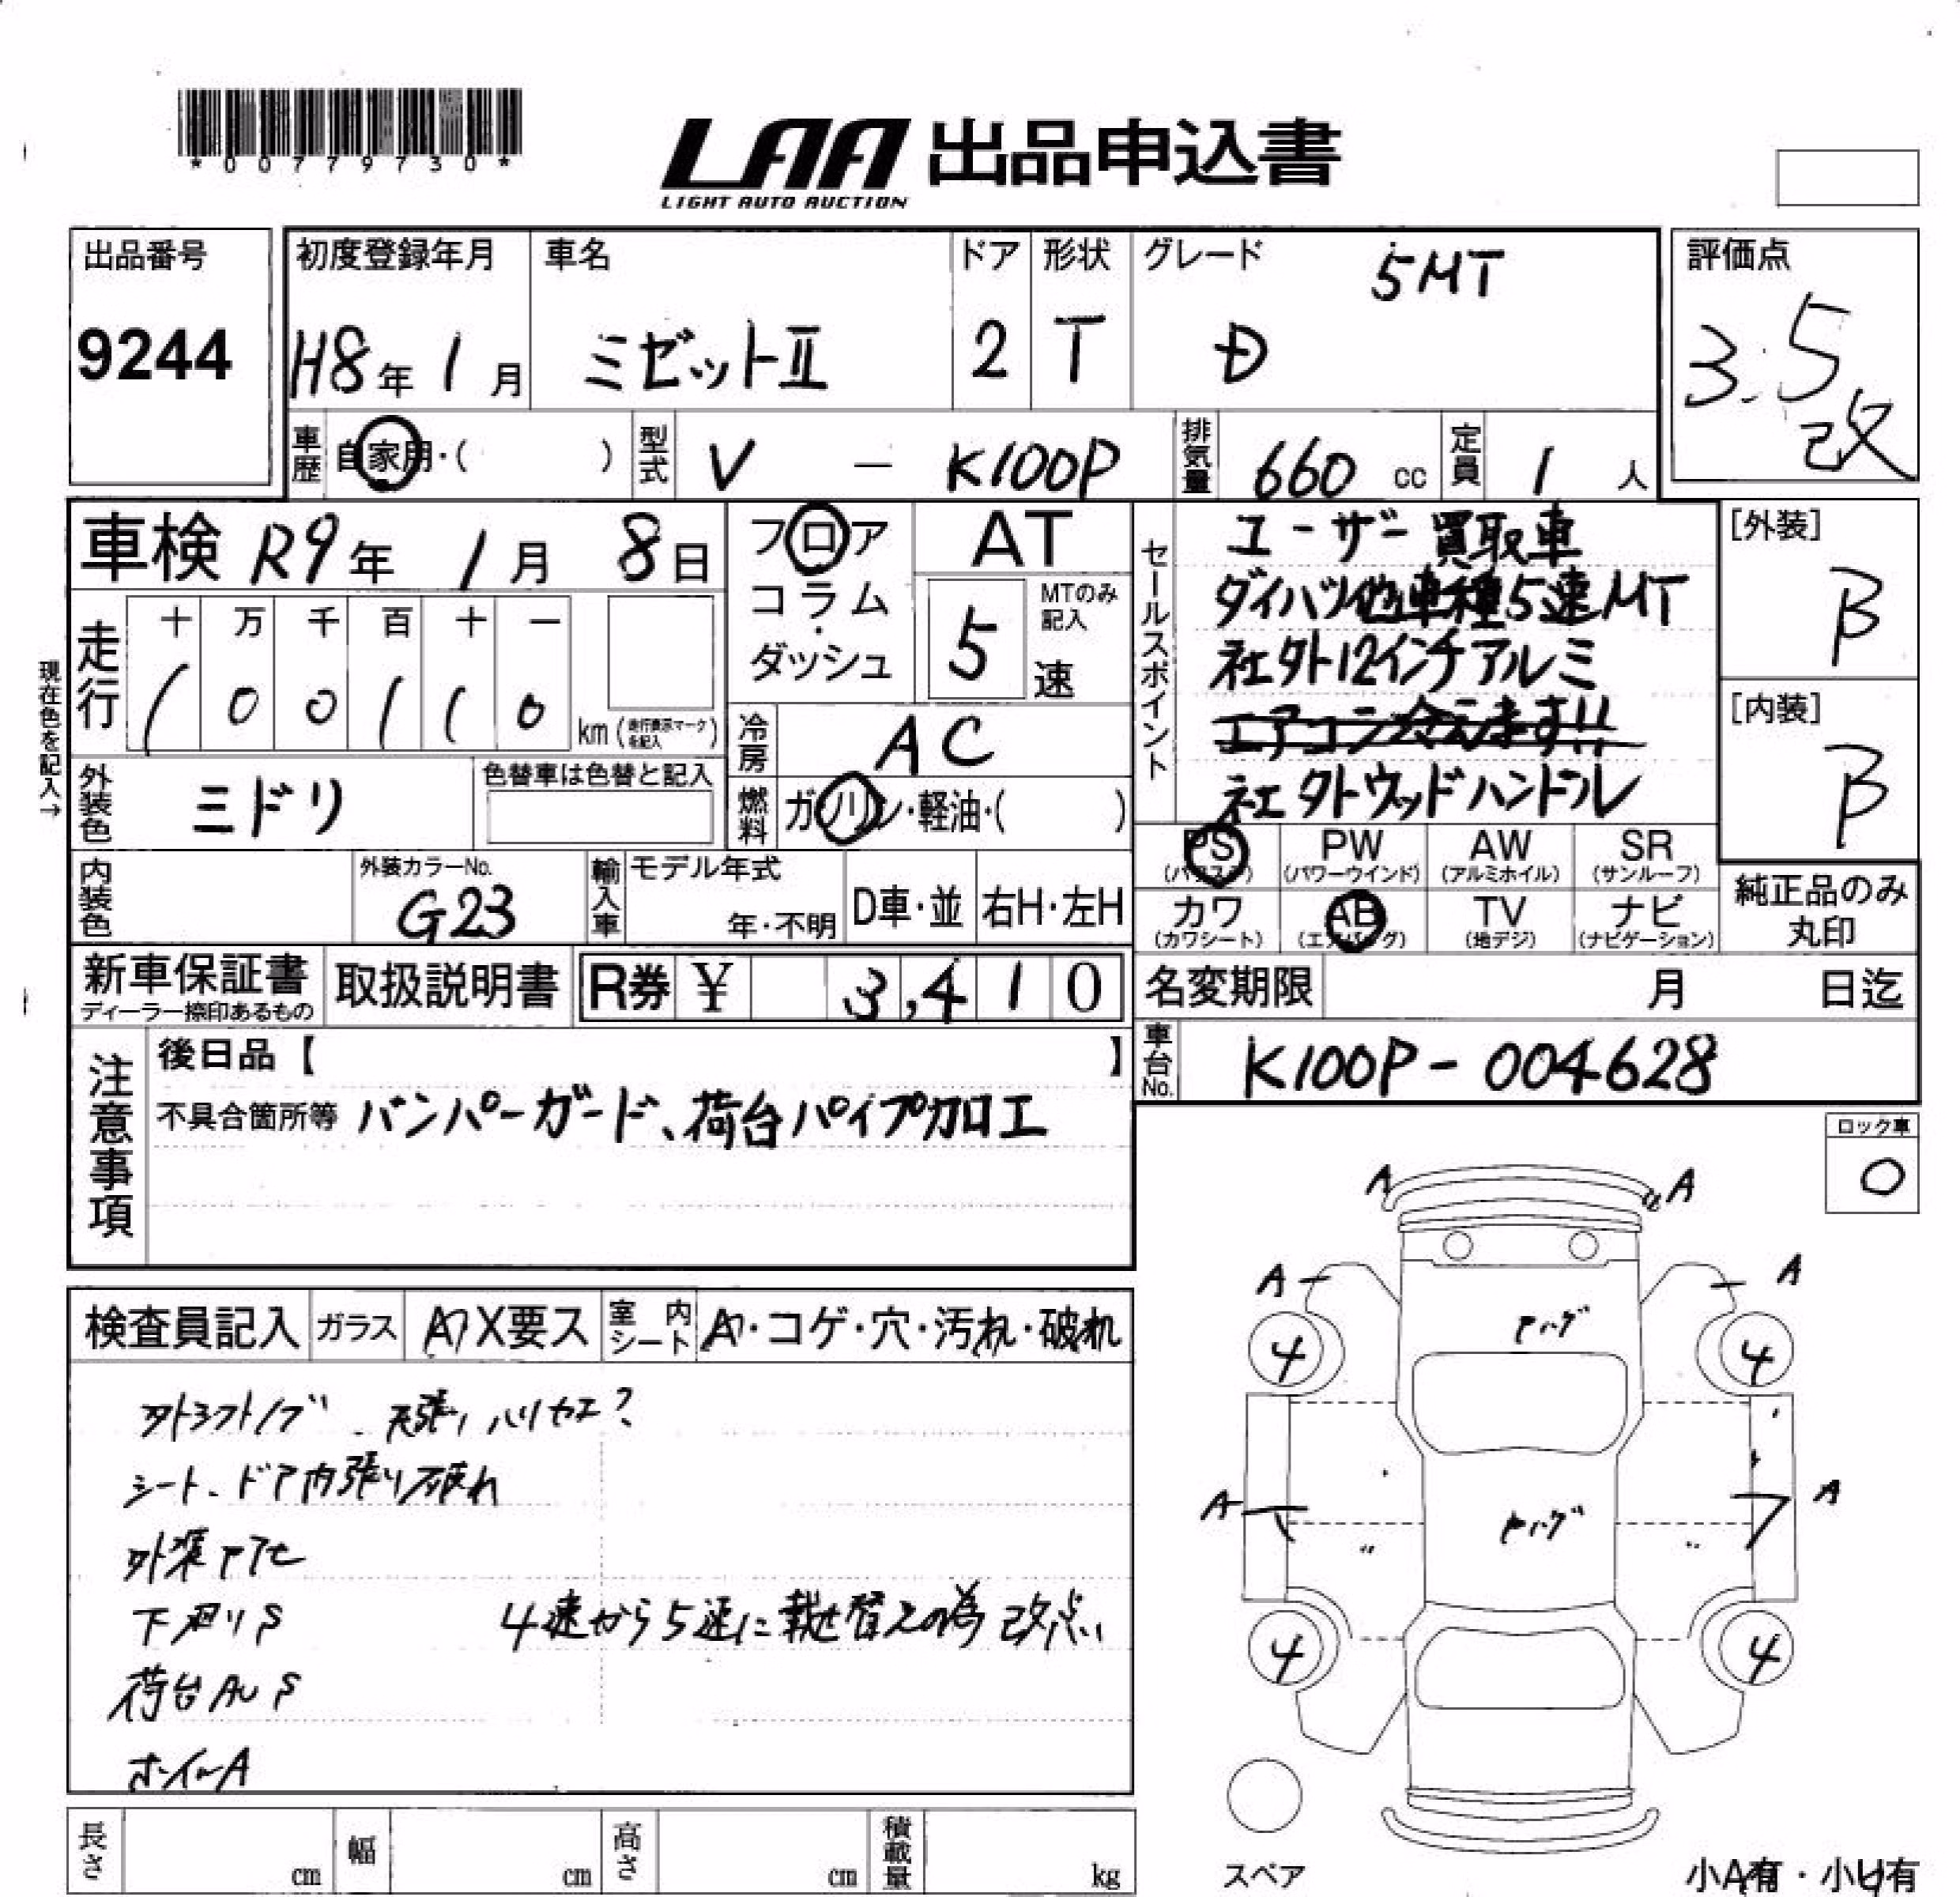 *00779730*
LAA 出品申込書
LIGHT AUTO AUCTION
出品番号
9244
初度登録年月
H8年 1月
車名
ミゼットⅡ
ドア
2
形状
T
グレード
5MT
D
評価点
3.5
改
車歴 自家用・( )
型式 V - K100P
排気量 660 cc
定員 1 人
車検 R9年 1月 8日
フロア
コラム・
ダッシュ
AT
5
MTのみ記入
速
走行
十 万 千 百 十 一
1 0 0 1 1 0
km (走行表示マークを記入)
現在色を記入→
冷房 AC
燃料 ガソリン・軽油・( )
外装色 ミドリ
色替車は色替と記入
内装色
外装カラーNo.
G23
輸入車
モデル年式
年・不明
D車・並
右H・左H
セールスポイント
ユーザー買取車
ダイハツ他車種5速MT
社外12インチアルミ
エアコン冷えます!!
社外ウッドハンドル
[外装]
B
[内装]
B
PS (パワステ)
PW (パワーウインド)
AW (アルミホイル)
SR (サンルーフ)
カワ (カワシート)
AB (エアバッグ)
TV (地デジ)
ナビ (ナビゲーション)
純正品のみ
丸印
新車保証書
ディーラー捺印あるもの
取扱説明書
R券 ¥ 3,410
名変期限 月 日迄
車台No. K100P-004628
注意事項
後日品【 】
不具合箇所等 バンパーガード、荷台パイプ加工
ロック車
○
検査員記入
ガラス
A フX要ス
室内シート
A・コゲ・穴・汚れ・破れ
外シフトノブ 天張りハリカエ?
シート、ドア内張り破れ
外装
下廻りS
4速から5速に載せ替えの為 改点
荷台AUS
ホイルA
A A
A A
4 4
A A
4 4
スペア
小A有・小U有
長さ cm
幅 cm
高さ cm
積載量 kg